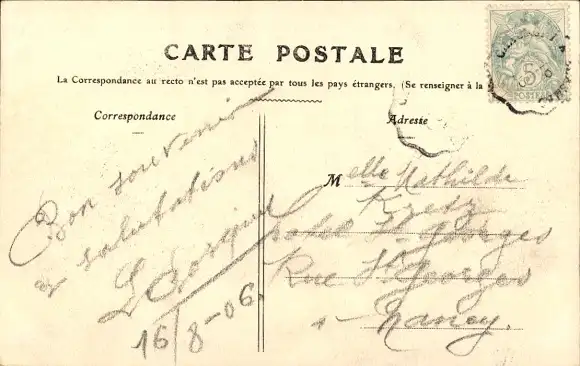 CARTE POSTALE
La Correspondance au recto n'est pas acceptée par tous les pays étrangers. (Se renseigner à la
Correspondance
Bon souvenir
et salutations
16/8-06.
Adresse
Melle Mathilde
Hotel St Georges
Rue St Georges
Nancy.
5
POSTES